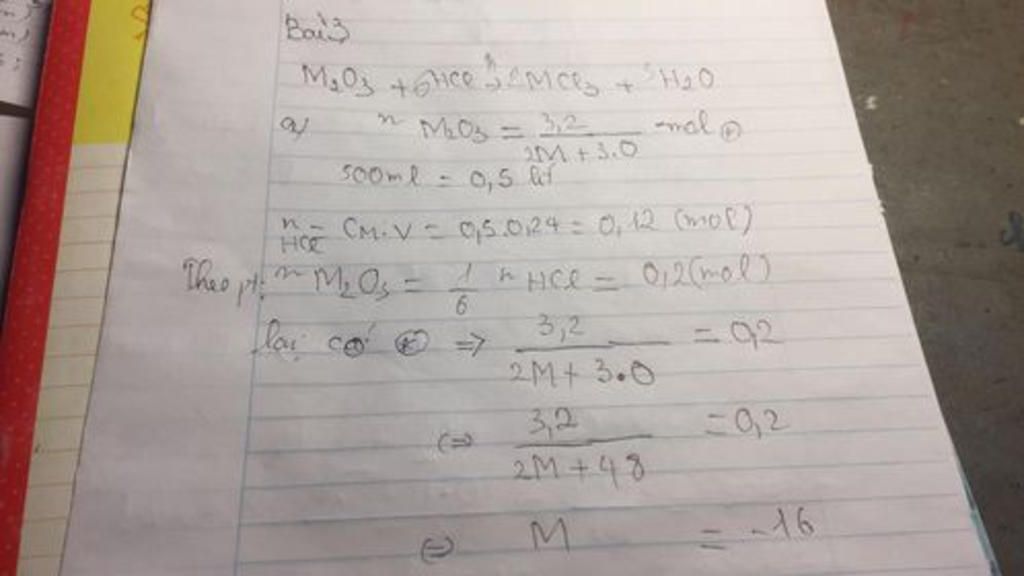 Bài 3
M₂O₃ + 6HCl → 2MCl₃ + 3H₂O
a) n M₂O₃ = 3,2 / 2M + 3.O mol (*)
500ml = 0,5 lít
n HCl = CM.V = 0,5.0,24 = 0,12 (mol)
Theo pt: n M₂O₃ = 1/6 n HCl = 0,2 (mol)
lại có (*) ⇒ 3,2 / 2M + 3.O = 0,2
⇔ 3,2 / 2M + 48 = 0,2
⇔ M = -16